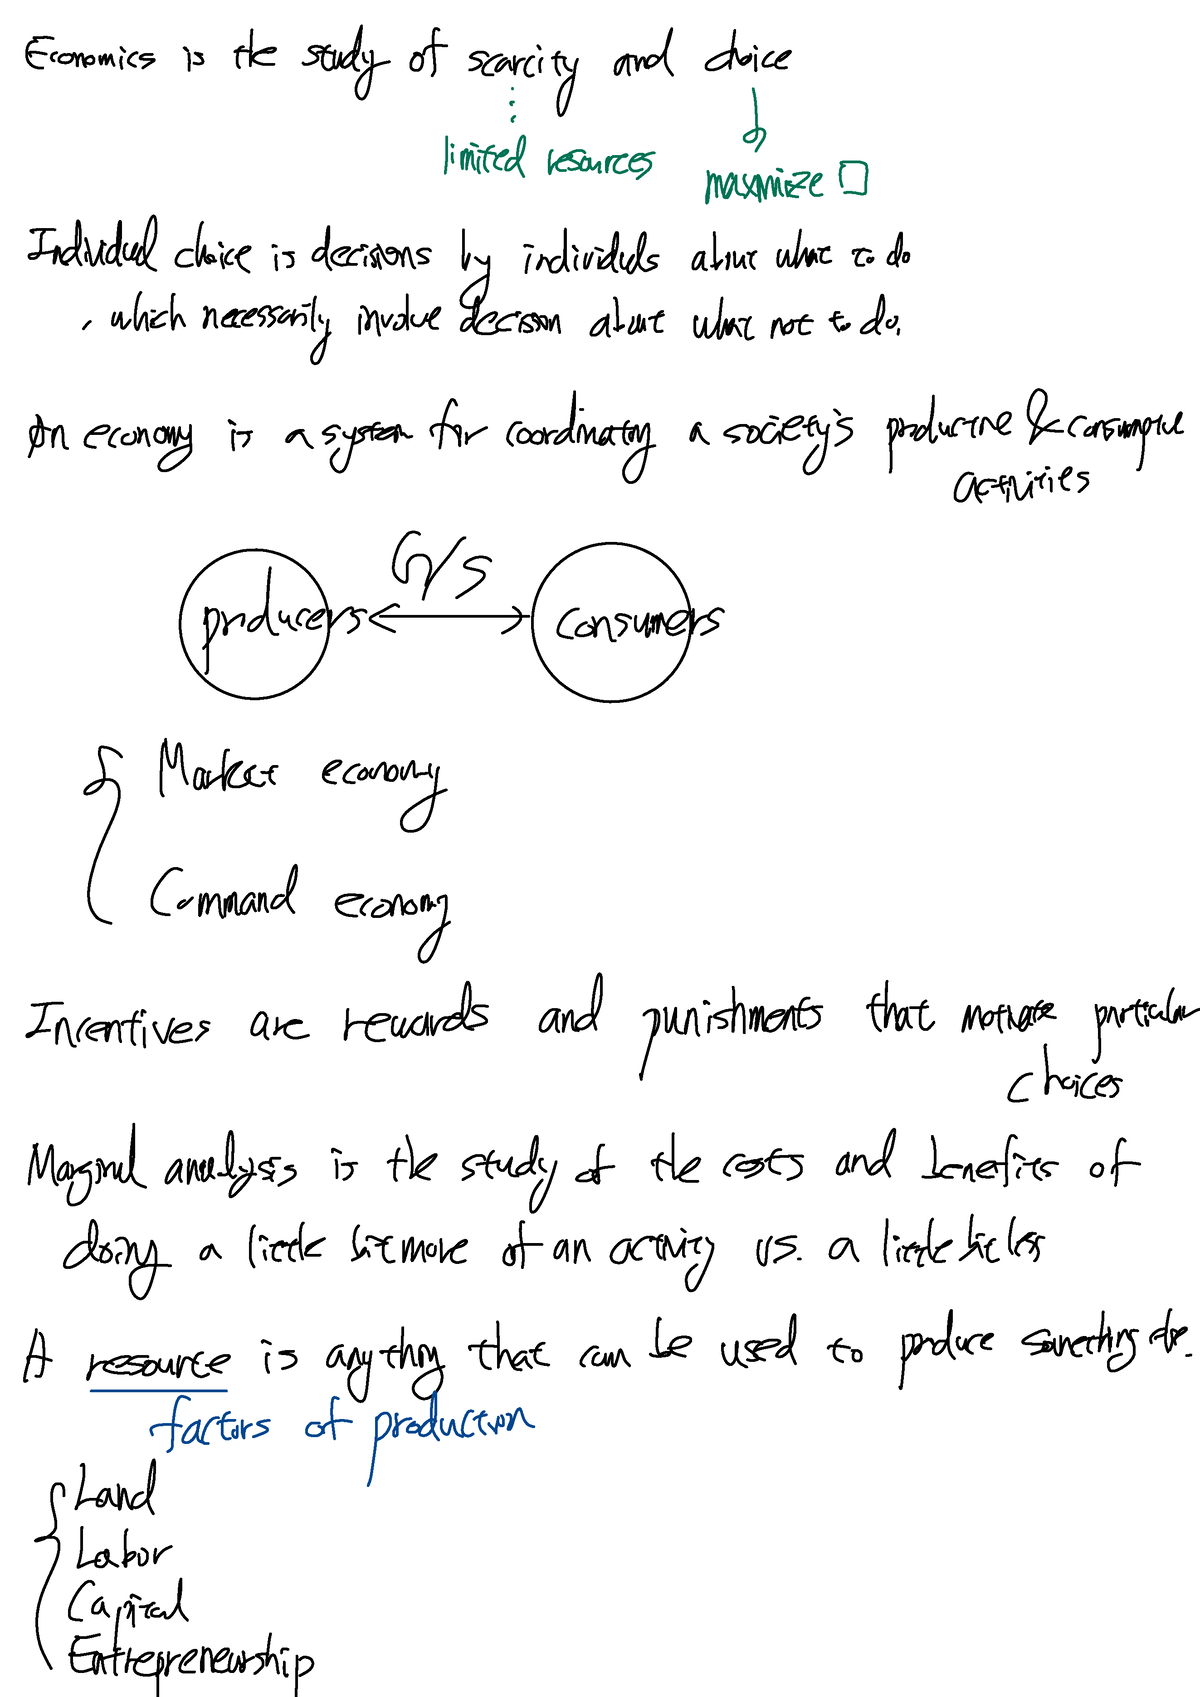 Economics is the study of scarcity and choice
limited resources
maxmize □
Individual choice is decisions by individuls about what to do
, which necessarily involve decision about what not to do.
An economy is a system for coordinating a society's productive & consumptive
activities
G/S
producers consumers
Market economy
Command economy
Incentives are rewards and punishments that motivate particular
choices
Marginal analysis is the study of the costs and benefits of
doing a little bit more of an activity vs. a little bit less
A resource is anything that can be used to produce something else.
factors of production
Land
Labor
Capital
Entrepreneurship